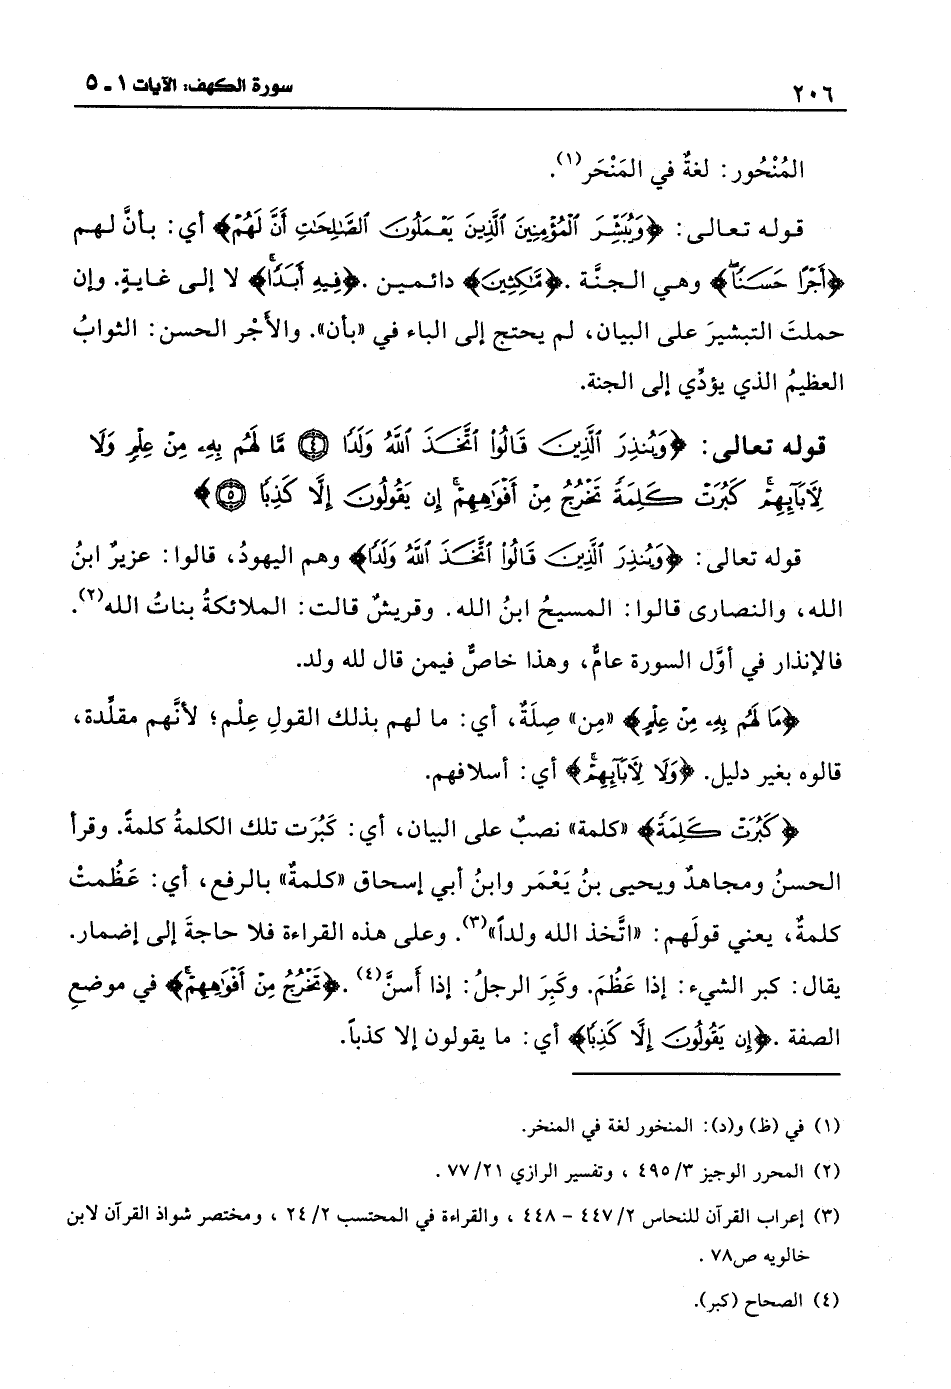 ٢٠٦
سورة الكهف: الآيات ١ - ٥
المُنْحُور: لغةٌ في المَنْحَر(١).
قوله تعالى: ﴿وَيُبَشِّرَ الْمُؤْمِنِينَ الَّذِينَ يَعْمَلُونَ الصَّالِحَاتِ أَنَّ لَهُمْ﴾ أي: بأنَّ لهم
﴿أَجْرًا حَسَنًا﴾ وهي الجنَّة. ﴿مَّاكِثِينَ﴾ دائمين. ﴿فِيهِ أَبَدًا﴾ لا إلى غايةٍ. وإن
حملتَ التبشيرَ على البيان، لم يحتج إلى الباء في «بأن». والأَجْر الحسن: الثوابُ
العظيمُ الذي يؤدِّي إلى الجنة.
قوله تعالى: ﴿وَيُنذِرَ الَّذِينَ قَالُوا اتَّخَذَ اللَّهُ وَلَدًا ٤ مَّا لَهُم بِهِ مِنْ عِلْمٍ وَلَا
لِآبَائِهِمْ كَبُرَتْ كَلِمَةً تَخْرُجُ مِنْ أَفْوَاهِهِمْ إِن يَقُولُونَ إِلَّا كَذِبًا ٥﴾
قوله تعالى: ﴿وَيُنذِرَ الَّذِينَ قَالُوا اتَّخَذَ اللَّهُ وَلَدًا﴾ وهم اليهودُ، قالوا: عزيرٌ ابنُ
الله، والنصارى قالوا: المسيحُ ابنُ الله. وقريشٌ قالت: الملائكةُ بناتُ الله(٢).
فالإنذار في أوَّل السورة عامٌّ، وهذا خاصٌّ فيمن قال لله ولد.
﴿مَا لَهُم بِهِ مِنْ عِلْمٍ﴾ «مِن» صِلَةٌ، أي: ما لهم بذلك القولِ عِلْم؛ لأنَّهم مقلِّدة،
قالوه بغير دليل. ﴿وَلَا لِآبَائِهِمْ﴾ أي: أسلافهم.
﴿كَبُرَتْ كَلِمَةً﴾ «كلمة» نصبٌ على البيان، أي: كَبُرَت تلك الكلمةُ كلمةً. وقرأ
الحسنُ ومجاهدٌ ويحيى بنُ يَعْمَر وابنُ أبي إسحاق «كلمةٌ» بالرفع، أي: عَظُمتْ
كلمةٌ، يعني قولَهم: «اتَّخذ الله ولداً»(٣). وعلى هذه القراءة فلا حاجةَ إلى إضمار.
يقال: كبر الشيء: إذا عَظُمَ. وكَبِرَ الرجلُ: إذا أَسنَّ(٤). ﴿تَخْرُجُ مِنْ أَفْوَاهِهِمْ﴾ في موضعِ
الصفة. ﴿إِن يَقُولُونَ إِلَّا كَذِبًا﴾ أي: ما يقولون إلا كذباً.
(١) في (ظ) و(د): المنخور لغة في المنخر.
(٢) المحرر الوجيز ٣/ ٤٩٥ ، وتفسير الرازي ٢١/ ٧٧ .
(٣) إعراب القرآن للنحاس ٢/ ٤٤٧ – ٤٤٨ ، والقراءة في المحتسب ٢/ ٢٤ ، ومختصر شواذ القرآن لابن
خالويه ص٧٨ .
(٤) الصحاح (كبر).